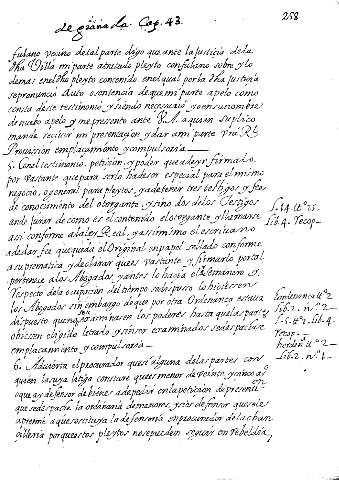 de granada Cap. 43.
258
fulano vezino de tal parte digo que ante la Justicia de la
dha Villa mi parte a tratado pleyto con fulano sobre y lo
demas en el dho pleyto contenido en el qual por la dha Justicia
se pronunció Auto sentencia de que mi parte apelo como
consta de este testimonio, y siendo necesario y en su nombre
de nuebo apelo y me presento ante V.A. a quien suplico
mande recivir mi presentaçion y dar a mi parte Vra Rl
Provission emplaçamiento y compulsoria
5. Con el testimonio, petiçion y poder que a de yr firmado,
por vastante que para serlo ha de ser espeçial para el mismo
negoçio, o general para pleytos, y a de tener tres testigos y fee
de conocimiento del otorgante, y sino dos de los Testigos
an de jurar de como es el contenido el otorgante y llamarse
asi conforme a la ley Real, y assimismo el escrivano
a de dar fee que queda el Original en papel sellado conforme
a su prematica y declarar que es vastante y firmarlo portal
pertenece a los Abogados y antes lo hacia el Relator y
respecto de la ocupacion del tiempo solo puesto lo hiciesen
los Abogados sin embargo de que por otra Ordenança estava
dispuesto que no examinaren los poderes hasta que la parte
obiesen elijido letrado y sin ser examinados se despachare
emplaçamiento y compulsoria.
6. Advierta el procurador que si alguna de las partes con
quien la suya litiga constare que es menor de veinte y cinco años
o que ay defensor de bienes a de pedir en la petiçion de presentaçion
que se despache la ordinaria de menores, y si es defensor que se le
aperciba a que sostituya la defensoria en procurador de la chan
çilleria porque estos pleytos no se pueden seguir en rebeldia,
l. 14. tt. 25.
lib. 4. recop.
hordenança tt. 2
lib. 2. n. 2
l. 5. tt. 2. lib. 4.
recop.
hordença tt. 2
lib. 2. n. 1.